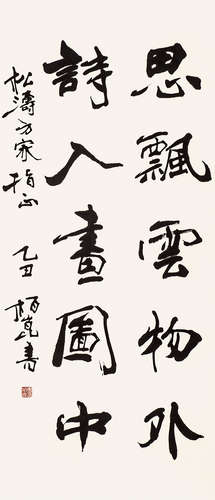 思飄雲物外
詩入畫圖中
松濤方家指正
乙丑 柏崑書